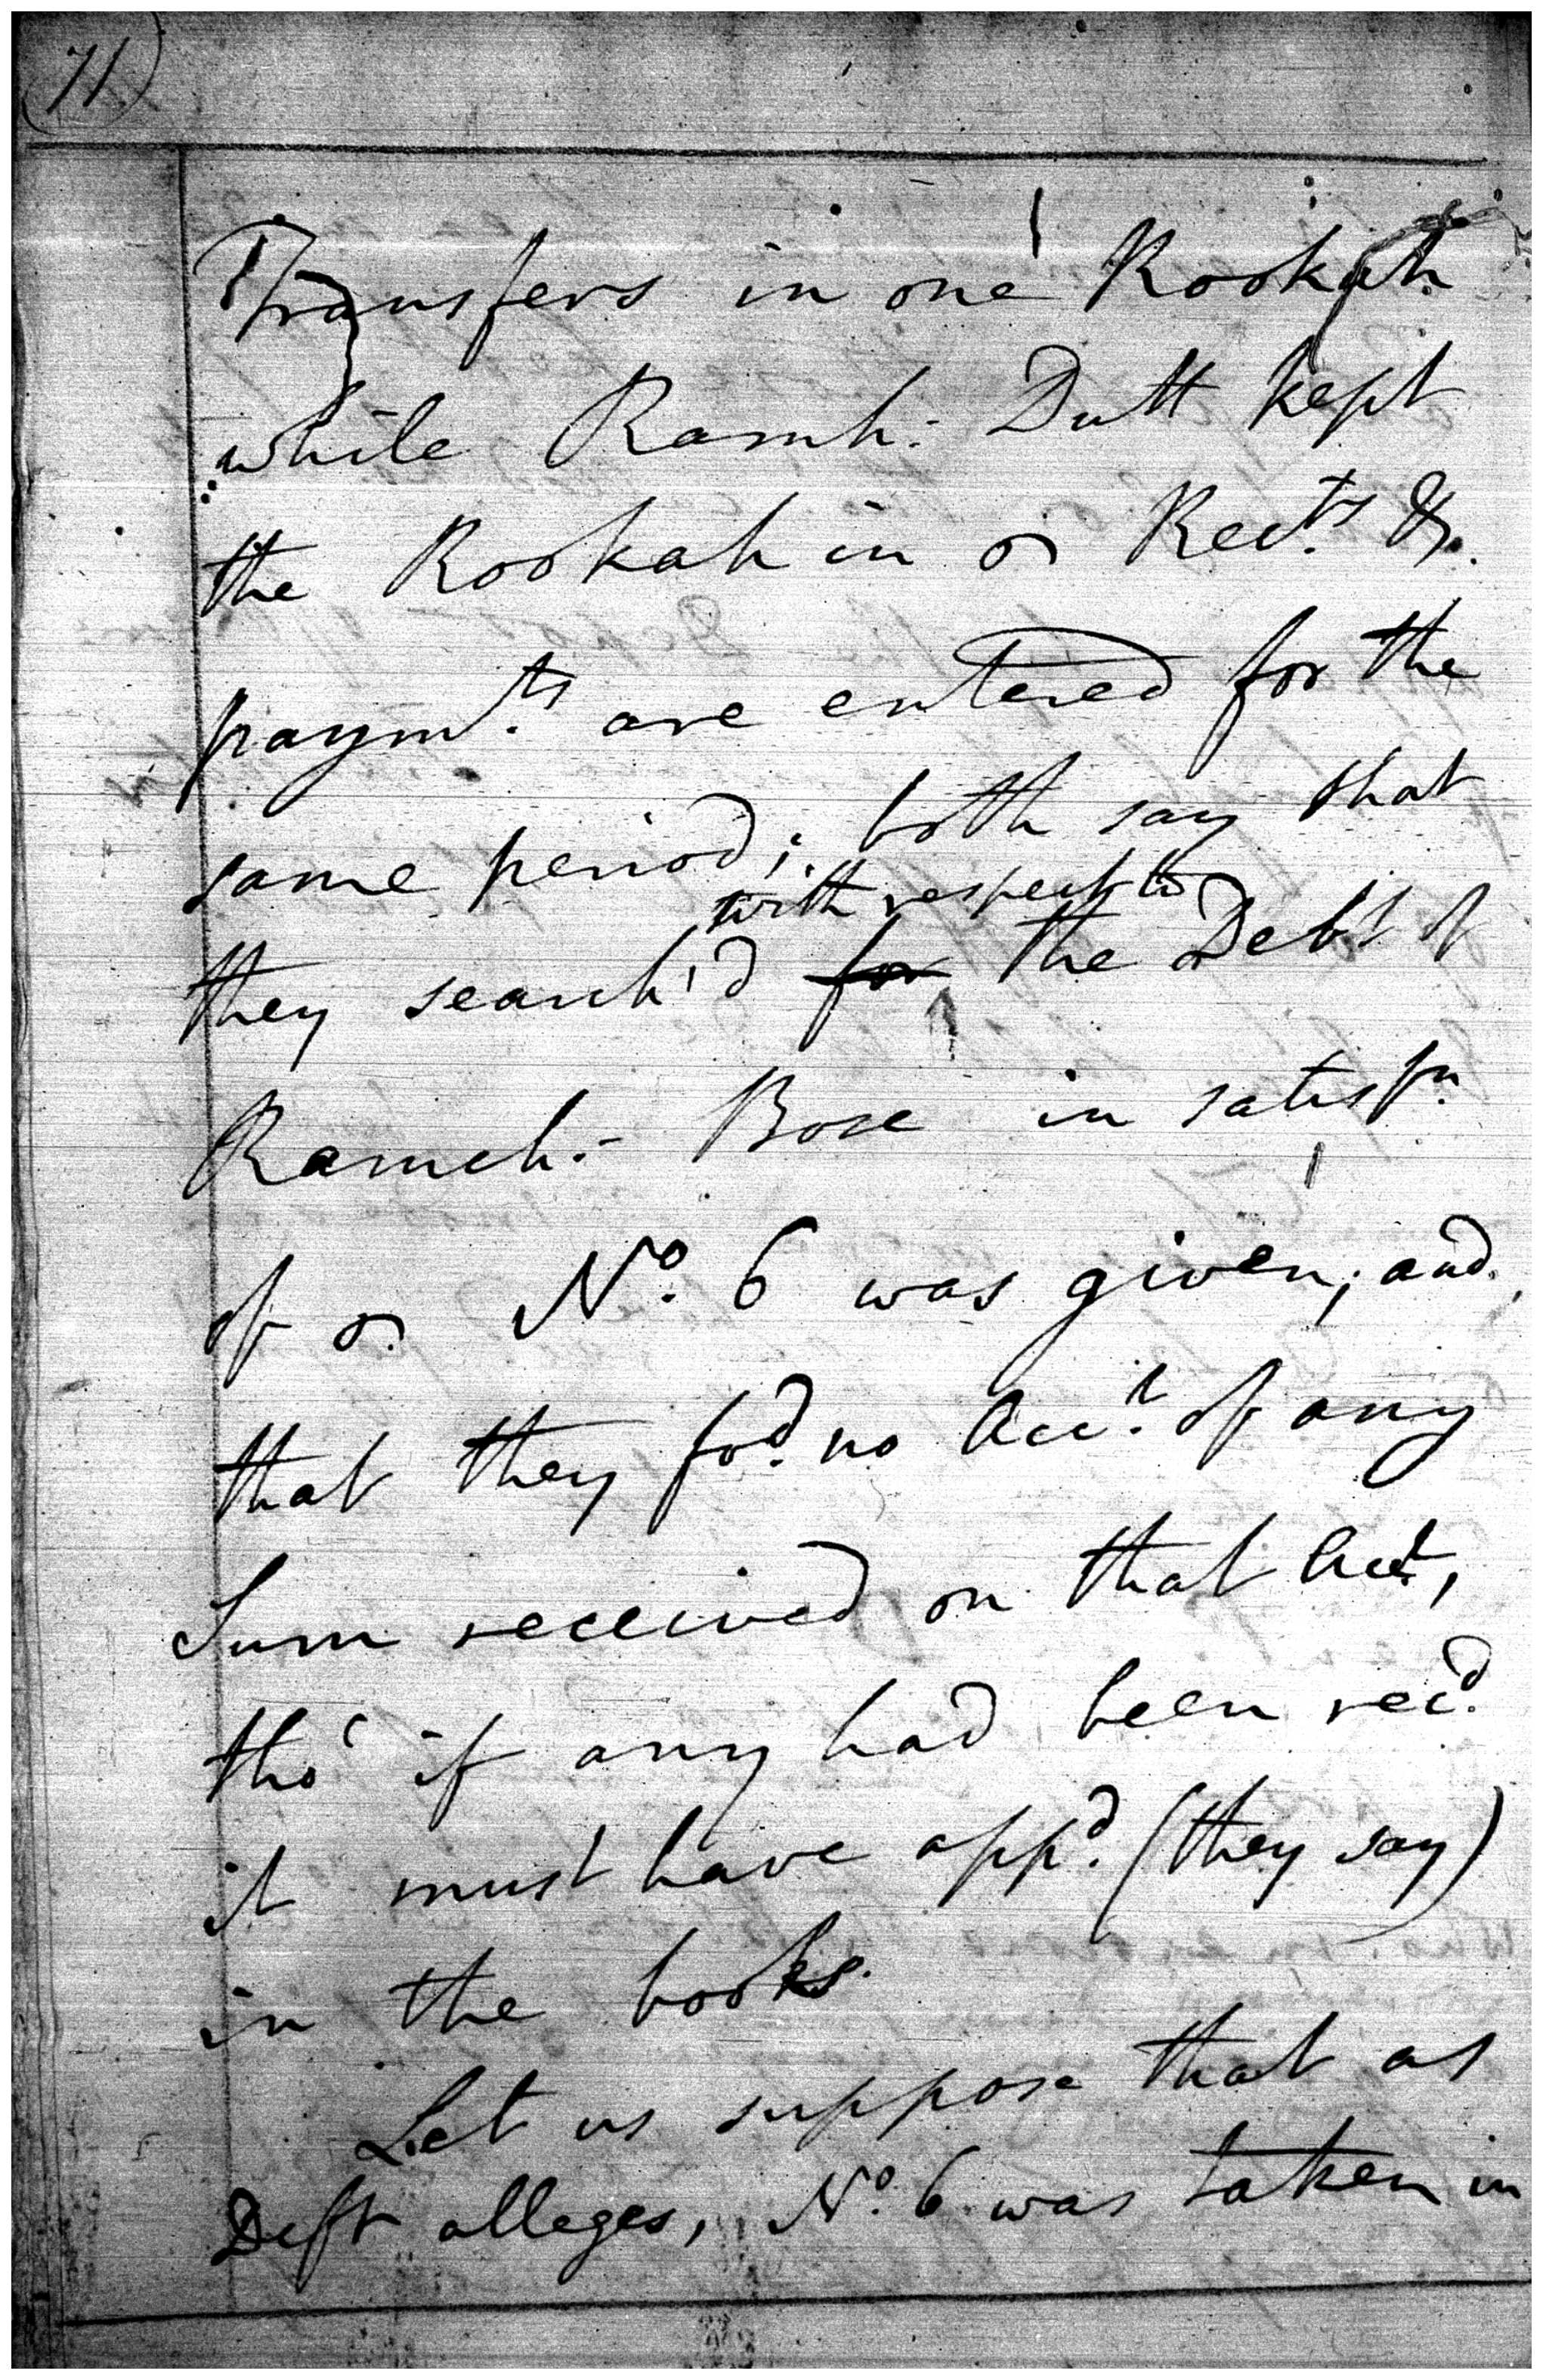 71
Transfers in one Rookah
while Ramh: Dutt kept
the Rookah in Rects. &.
paymts. are entered for the
same period; both say that
with respect to
they search'd for the Debt of
Ramch:- Bose in satisfn.
of No. 6 was given; and
that they fod. no Acct. of any
Sum received on that Acct,
tho' if any had been recd.
it must have appd. (they say)
in the books.
Let us suppose that as
Deft alleges, No. 6 was taken in